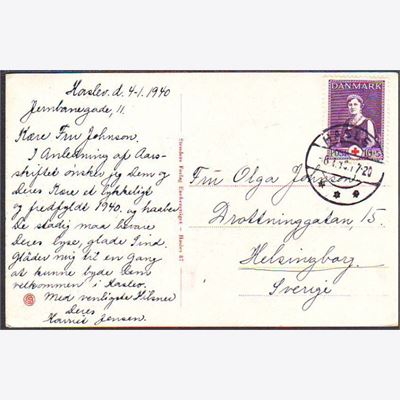 Haslev. d. 4-1. 1940
Jernbanegade, 11.
Kære Fru Johnson.
I Anledning af Aars-
skiftet ønsker jeg Dem og
deres Kære et lykkeligt
og fredfyldt 1940. og haaber
De stadig maa bevare
Deres lyse, glade Sind.
Glæder mig til en Gang
at kunne byde Dem
velkommen i Haslev.
Med venligste Hilsner
Deres
Jensen.
Stenders Forlag
Haslev 67
DANMARK
HASLE
Fru Olga Johnson
Drottninggatan, 15.
Helsingborg.
Sverige